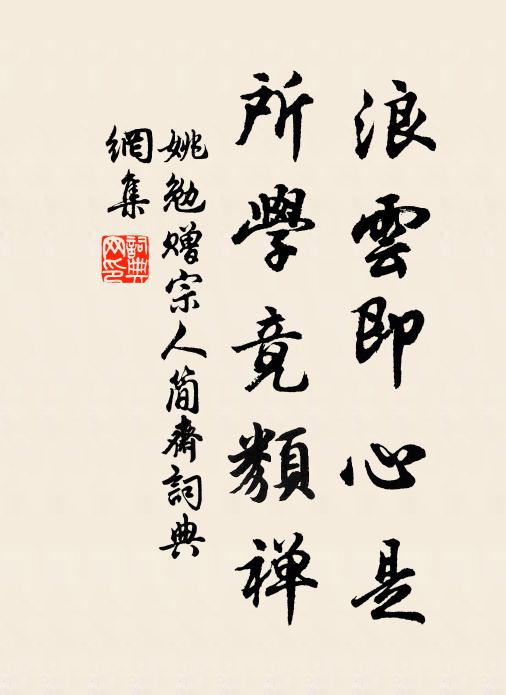 浪雲即心是
所學竟類禅
姚勉赠宗人简齋詞典
網集
詞典網印